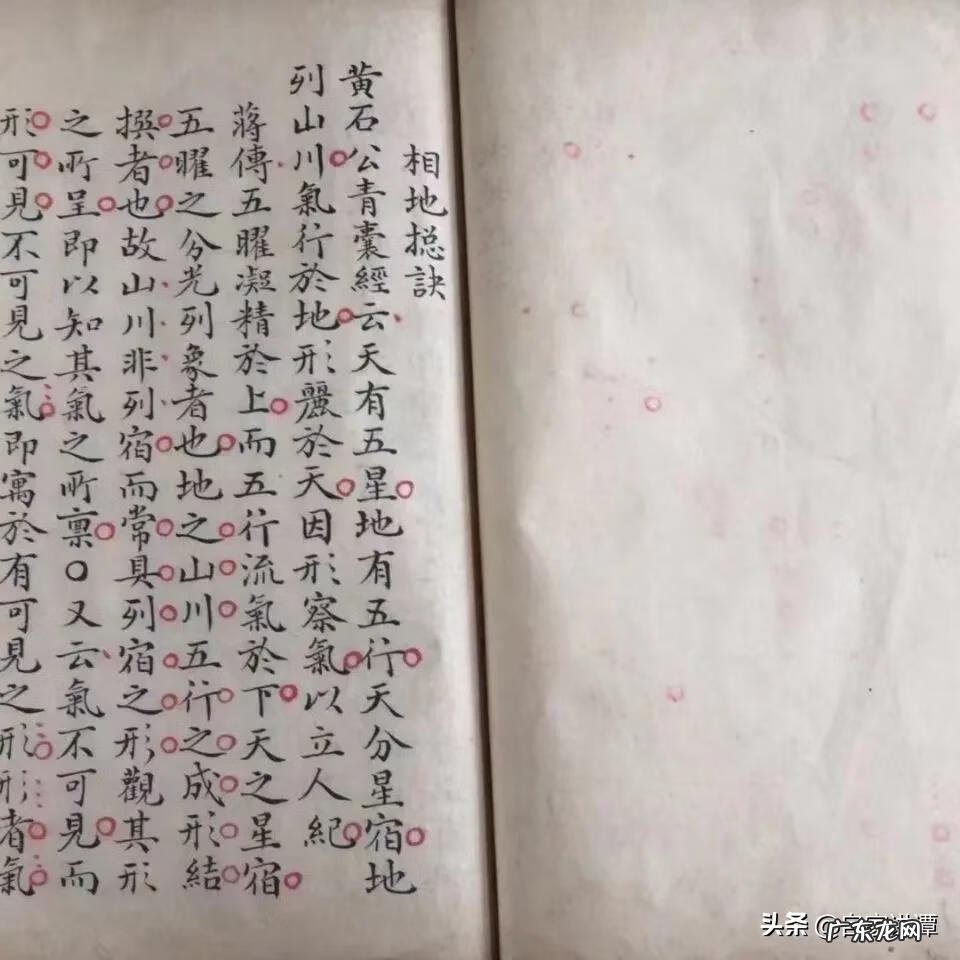 相地揔訣
黄石公青囊經云天有五星地有五行天分星宿地
列山川氣行於地形麗於天因形察氣以立人紀
蔣傳五曜凝精於上而五行流氣於下天之星宿
五曜之分光列象者也地之山川五行之成形結
撰者也故山川非列宿而常具列宿之形觀其形
之所呈即以知其氣之所禀〇又云氣不可見而
形可見不可見之氣即寓於有可見之形形者氣
头条
广东龙网